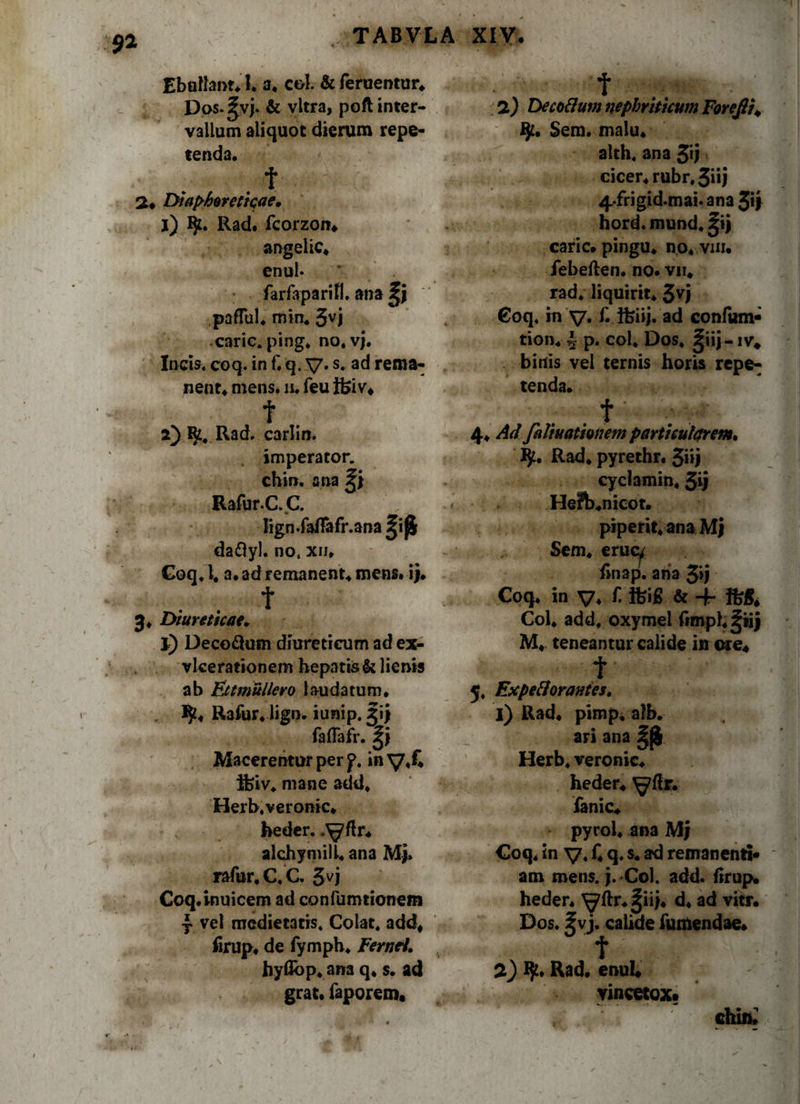 92
TABVLA XIV.
Ebullant. l. a. col. & ſeruentur.
Dos. ℥vj. & vltra, poſt inter-
vallum aliquot dierum repe-
tenda.
†
2. Diaphoreticae.
1) ℞. Rad. ſcorzon.
angelic.
enul.
ſarſaparill. ana ℥j
paſſul. min. ʒvj
caric. ping. no. vj.
Incis. coq. in ſ. q. 🜄. s. ad rema-
nent. mens. 11. ſeu ℔iv.
†
2) ℞. Rad. carlin.
imperator.
chin. ana ℥j
Raſur. C. C.
lign. ſaſſafr. ana ℥iß
dactyl. no. xii.
Coq. l. a. ad remanent. mens. ij.
†
3. Diureticae.
1) Decoctum diureticum ad ex-
vlcerationem hepatis & lienis
ab Ettmüllero laudatum.
℞. Raſur. lign. iunip. ℥ij
ſaſſafr. ℥j
Macerentur per ƿ. in 🜄. ſ.
℔iv. mane add.
Herb. veronic.
heder. 🜃ſtr.
alchymill. ana Mj.
raſur. C. C. ʒvj
Coq. inuicem ad conſumtionem
vel medietatis. Colat. add.
ſirup. de ſymph. Fernel.
hyſſop. ana q. s. ad
grat. ſaporem.
†
2) Decoctum nephriticum Foreſti.
℞. Sem. malu.
alth. ana ʒij
cicer. rubr. ʒiij
4. frigid. mai. ana ʒij
hord. mund. ℥ij
caric. pingu. no. viii.
ſebeſten. no. vii.
rad. liquirit. ʒvj
Coq. in 🜄. ſ. ℔iij. ad conſum-
tion. ½ p. col. Dos. ℥iij - iv.
binis vel ternis horis repe-
tenda.
†
4. Ad ſaliuationem particularem.
℞. Rad. pyrethr. ʒiij
cyclamin. ʒij
Herb. nicot.
piperit. ana Mj
Sem. eruc.
ſinap. ana ʒij
Coq. in 🜄. ſ. ℔iß & + ℔ß.
Col. add. oxymel ſimpl. ℥iij
M. teneantur calide in ore.
†
5. Expectorantes.
1) Rad. pimp. alb.
ari ana ℥ß
Herb. veronic.
heder. 🜃ſtr.
ſanic.
pyrol. ana Mj
Coq. in 🜄. ſ. q. s. ad remanenti-
am mens. j. Col. add. ſirup.
heder. 🜃ſtr. ℥iij. d. ad vitr.
Dos. ℥vj. calide ſumendae.
†
2) ℞. Rad. enul.
vincetox.
chin.